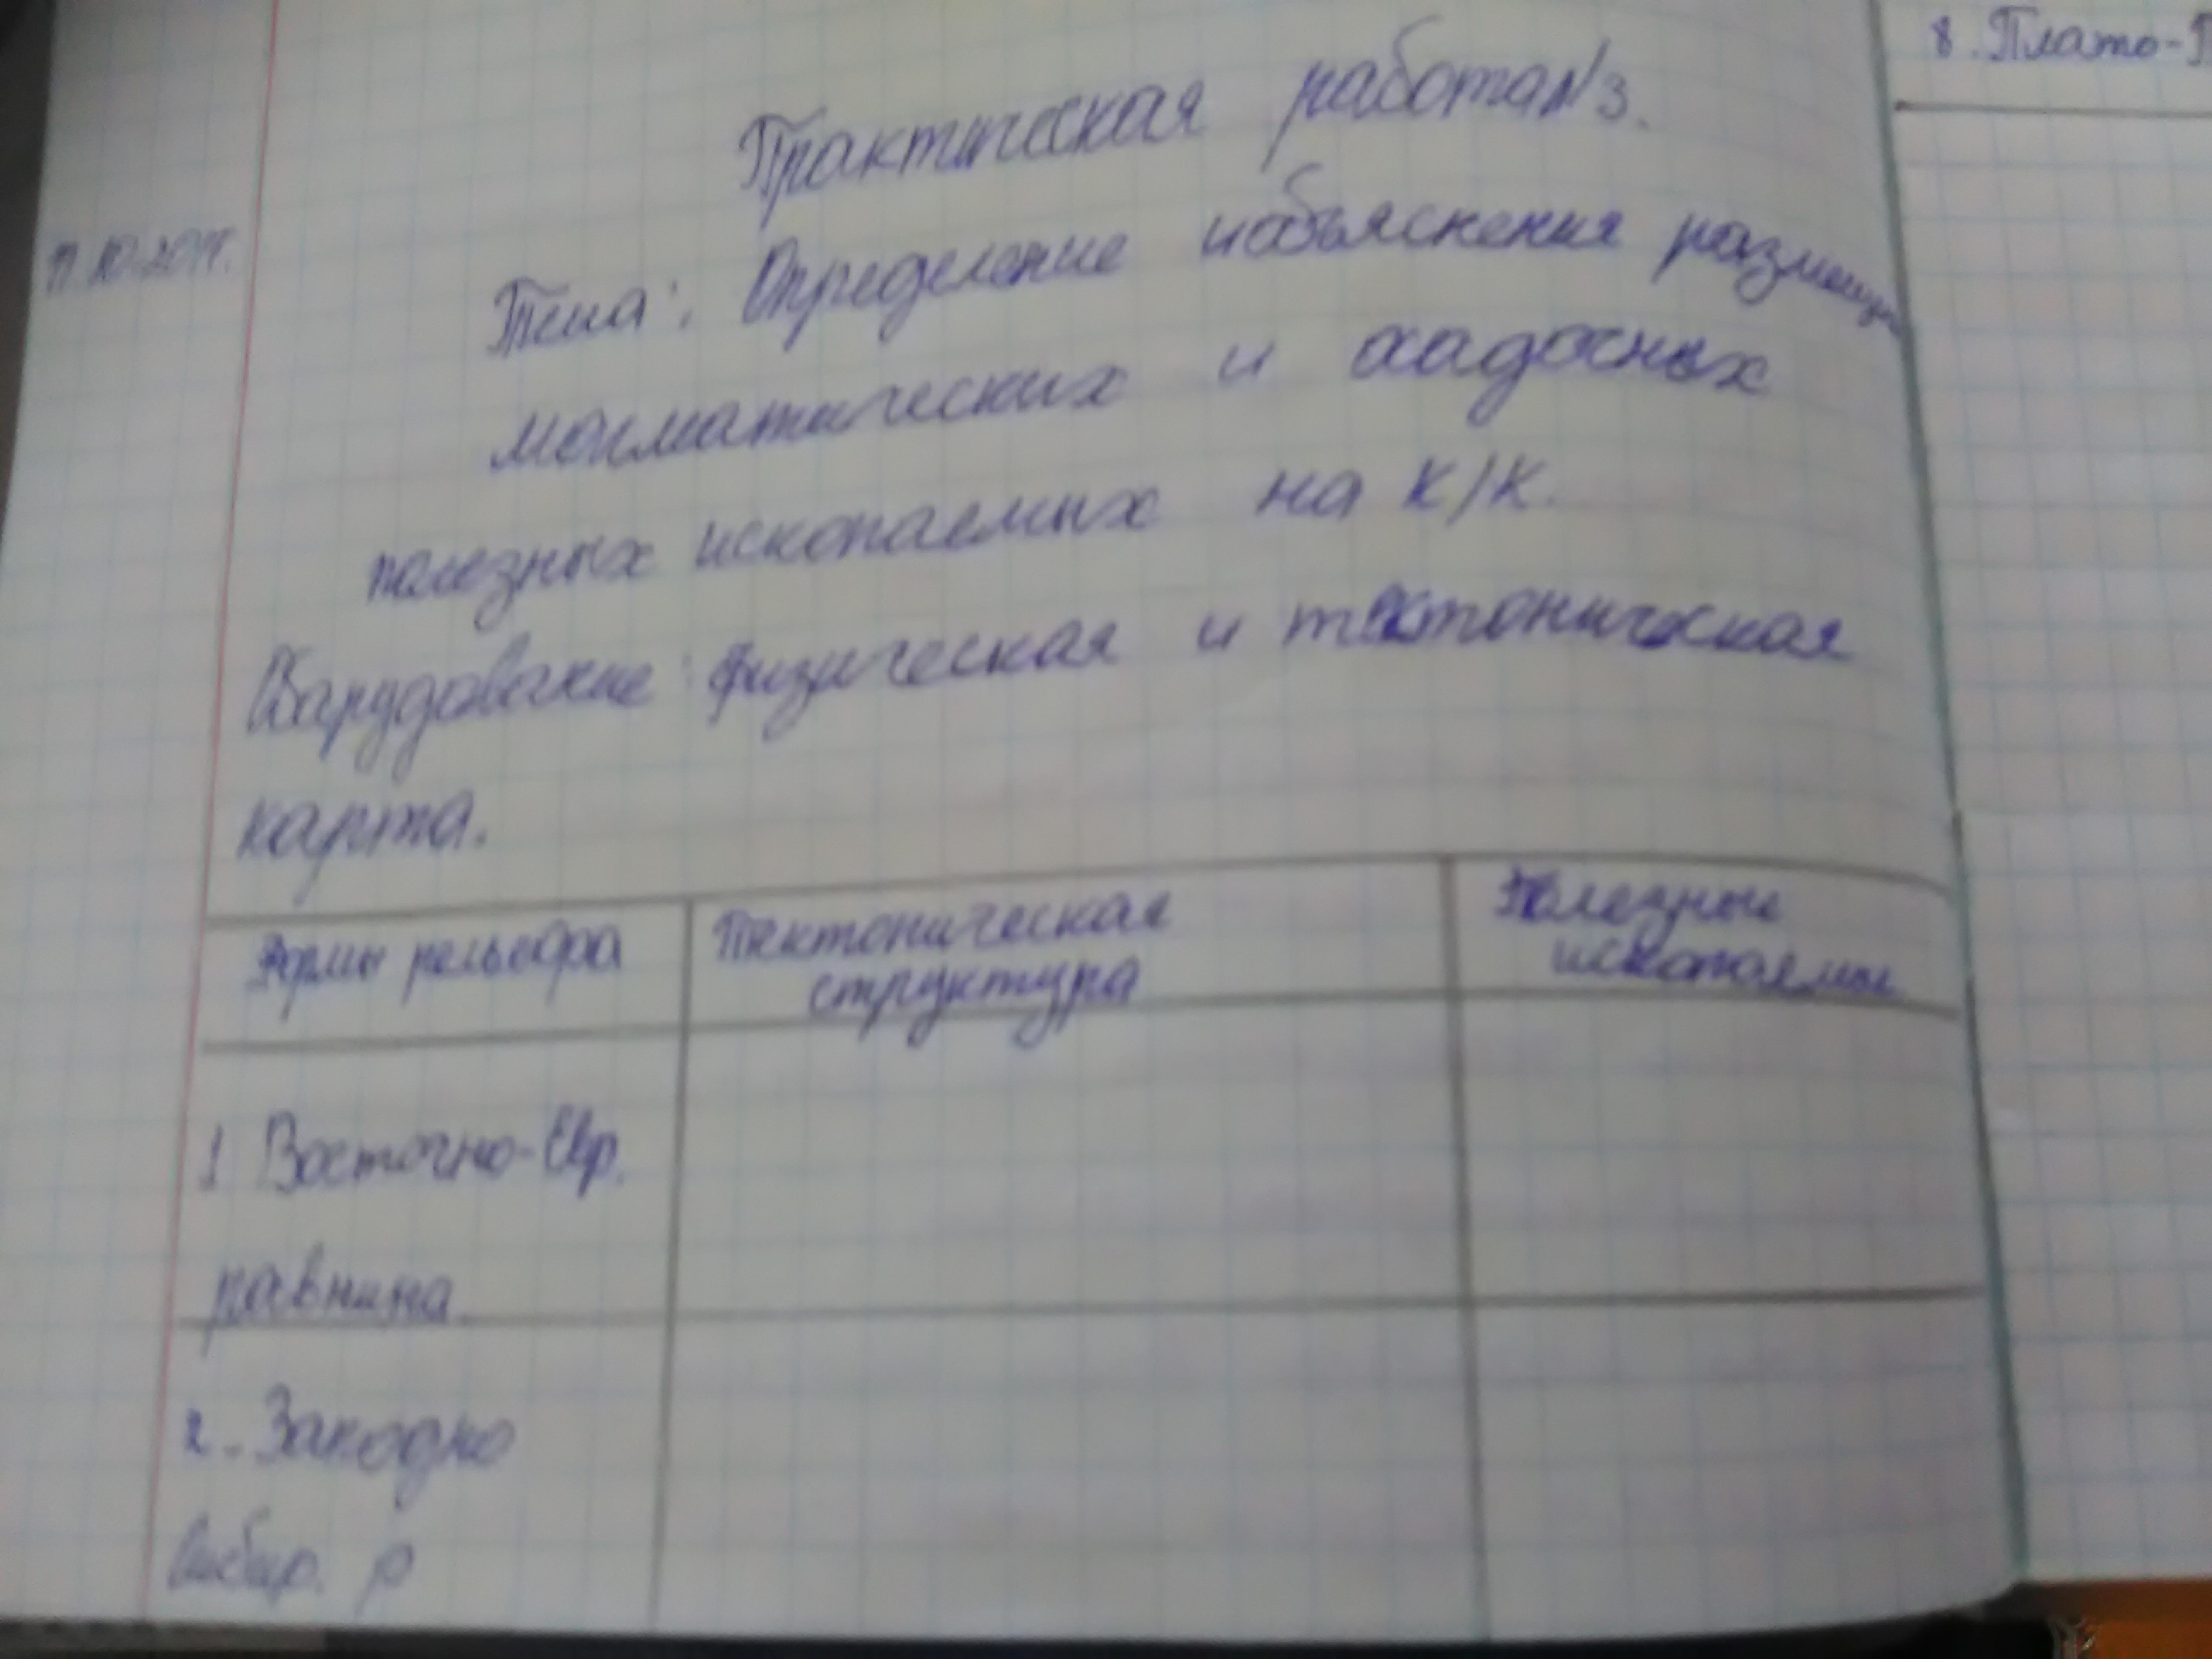 Практическая работа№3.
Тема: Определение и объяснения размещ
магматических и осадочных
полезных ископаемых на к/к.
Обарудование: физическая и тектоническая
карта.
Формы рельефа
Тектоническая
структура
Полезные
ископаемые
1. Восточно-Евр.
равнина
2. Западно
Сибир. р
8. Плато-П